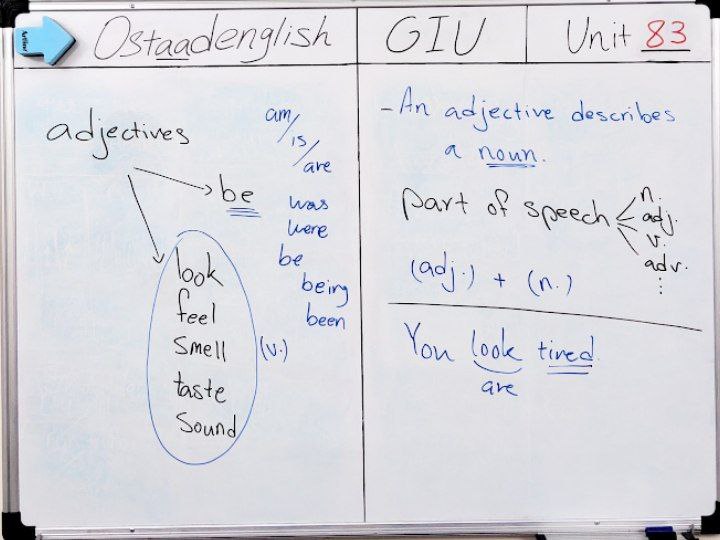 Ostaadenglish
GIU
Unit 83
adjectives
be
am/
is/
are
was
were
be
being
been
look
feel
smell
taste
sound
(v.)
- An adjective describes
a noun.
part of speech
n.
adj.
v.
adv.
⋮
(adj.) + (n.)
You look tired.
are